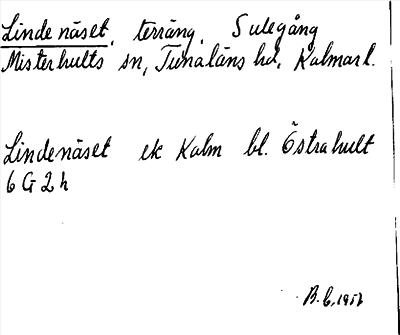 Lindenäset, terräng, Sulegång
Misterhults sn, Tunaläns hd, Kalmar l.
Lindenäset ek Kalm bl. Östrahult
6 G 2 h
B. L, 1951